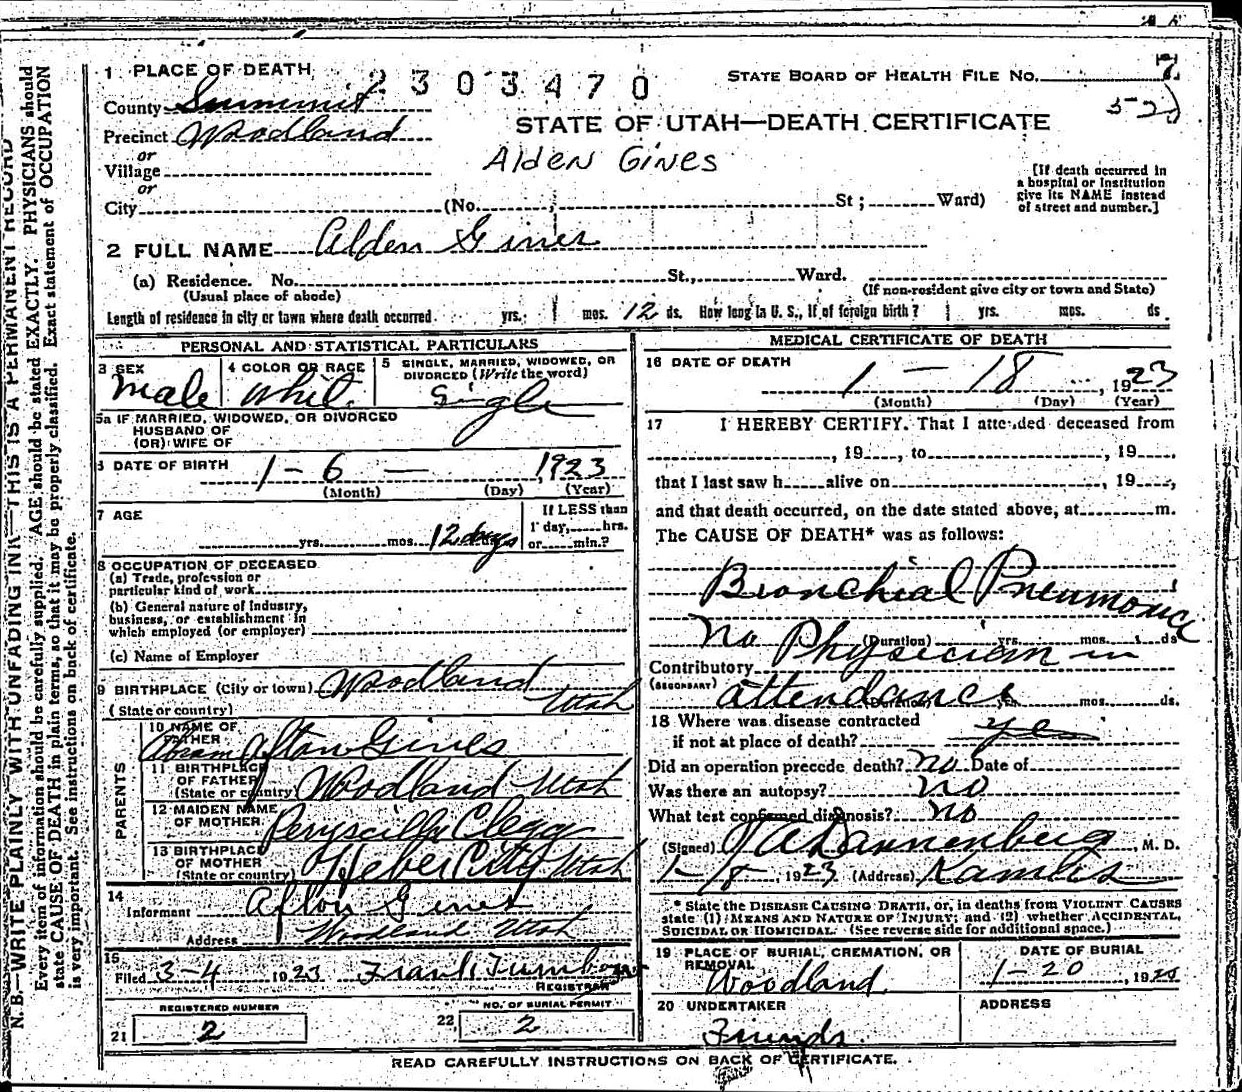 1 PLACE OF DEATH
2303470
STATE BOARD OF HEALTH FILE NO. 7
County Summit
Precinct Woodland
STATE OF UTAH—DEATH CERTIFICATE
or
Village
Alden Gines
or
City (No. ; St ; Ward)
[If death occurred in
a hospital or institution
give its NAME instead
of street and number.]
2 FULL NAME Alden Gines
(a) Residence. No. St., Ward.
(Usual place of abode) (If non-resident give city or town and State)
Length of residence in city or town where death occurred. yrs. mos. 12 ds. How long in U. S., if of foreign birth? yrs. mos. ds.
PERSONAL AND STATISTICAL PARTICULARS
3 SEX
Male
4 COLOR OR RACE
White
5 SINGLE, MARRIED, WIDOWED, OR
DIVORCED (Write the word)
Single
5a IF MARRIED, WIDOWED, OR DIVORCED
HUSBAND OF
(OR) WIFE OF
6 DATE OF BIRTH 1 - 6 - , 1923
(Month) (Day) (Year)
7 AGE
yrs. mos. 12 days
If LESS than
1 day, hrs.
or min.?
8 OCCUPATION OF DECEASED
(a) Trade, profession or
particular kind of work
(b) General nature of industry,
business, or establishment in
which employed (or employer)
(c) Name of Employer
9 BIRTHPLACE (City or town) Woodland
(State or country) Utah
PARENTS
10 NAME OF
FATHER Afton Gines
11 BIRTHPLACE
OF FATHER
(State or country) Woodland Utah
12 MAIDEN NAME
OF MOTHER Peryscilla Clegg
13 BIRTHPLACE
OF MOTHER
(State or country) Heber City Utah
14
Informant Afton Gines
Address Woodland Utah
15
Filed 3-4 1923 Frank
REGISTRAR
REGISTERED NUMBER
21 2
NO. OF BURIAL PERMIT
22 2
MEDICAL CERTIFICATE OF DEATH
16 DATE OF DEATH
1 - 18 , 1923
(Month) (Day) (Year)
17 I HEREBY CERTIFY. That I attended deceased from
, 19 , to , 19 ,
that I last saw h alive on , 19 ,
and that death occurred, on the date stated above, at m.
The CAUSE OF DEATH* was as follows:
Bronchial Pneumonia
No Physician in
(Duration) yrs. mos. ds.
Contributory
(SECONDARY) attendance
(Duration) yrs. mos. ds.
18 Where was disease contracted
if not at place of death? yes
Did an operation precede death? no Date of
Was there an autopsy? no
What test confirmed diagnosis? no
(Signed) Dannenberg, M. D.
1-18, 1923 (Address) Kamas
* State the DISEASE CAUSING DEATH, or, in deaths from VIOLENT CAUSES
state (1) MEANS AND NATURE OF INJURY; and (2) whether ACCIDENTAL,
SUICIDAL OR HOMICIDAL. (See reverse side for additional space.)
19 PLACE OF BURIAL, CREMATION, OR
REMOVAL
Woodland
DATE OF BURIAL
1-20, 1923
20 UNDERTAKER
Friends
ADDRESS
READ CAREFULLY INSTRUCTIONS ON BACK OF CERTIFICATE.
N.B.—WRITE PLAINLY WITH UNFADING INK—THIS IS A PERMANENT RECORD
Every item of information should be carefully supplied. AGE should be stated EXACTLY. PHYSICIANS should
state CAUSE OF DEATH in plain terms, so that it may be properly classified. Exact statement of OCCUPATION
is very important. See instructions on back of certificate.